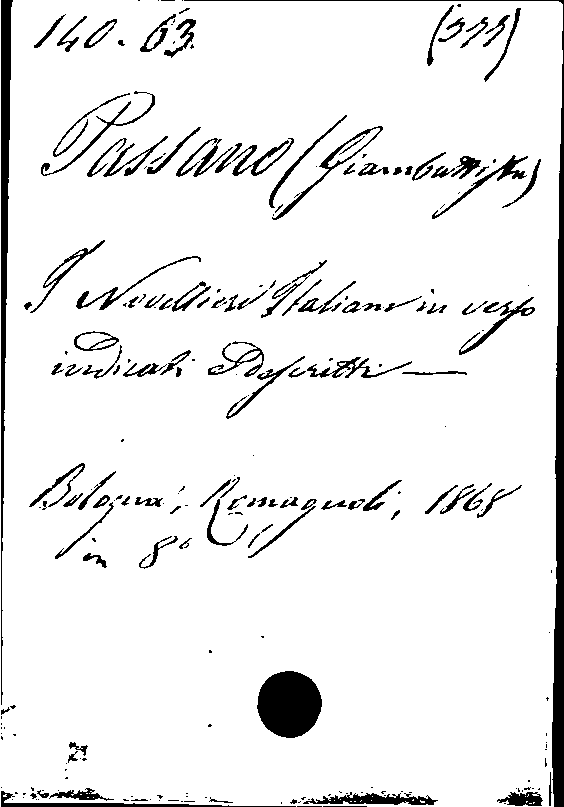 140. 63.
Passano (Giambattista)
I Novellieri Italiani in verso
indicati e descritti —
Bologna, Romagnoli, 1868
in 8°
21